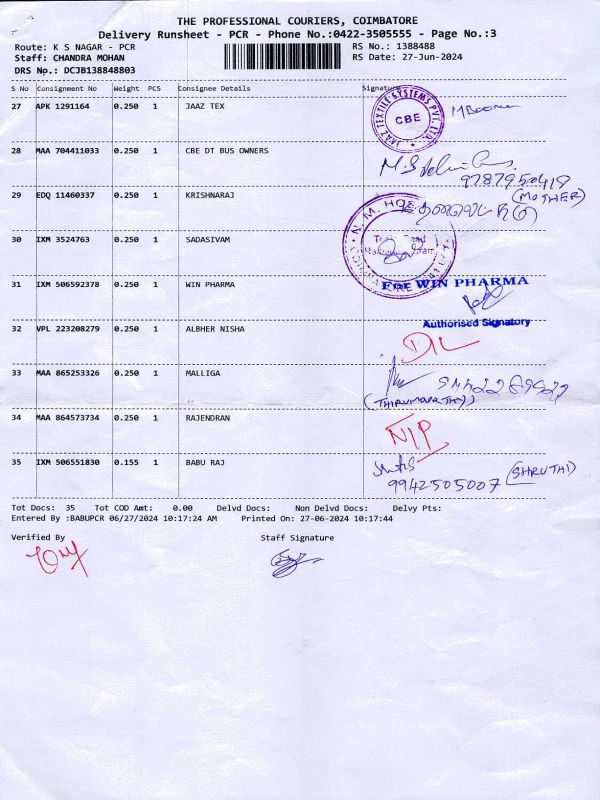 THE PROFESSIONAL COURIERS, COIMBATORE
Delivery Runsheet - PCR - Phone No.:0422-3505555 - Page No.:3
Route: K S NAGAR - PCR RS No.: 1388488
Staff: CHANDRA MOHAN RS Date: 27-Jun-2024
DRS No.: DCJB138848803
S No Consignment No Weight PCS Consignee Details Signature
27 APK 1291164 0.250 1 JAAZ TEX
JAAZ TEXTILE SYSTEMS PVT. LTD. CBE
28 MAA 704411033 0.250 1 CBE DT BUS OWNERS
29 EDQ 11460337 0.250 1 KRISHNARAJ
(MOTHER)
30 IXM 3524763 0.250 1 SADASIVAM
31 IXM 506592378 0.250 1 WIN PHARMA
For WIN PHARMA
Authorised Signatory
32 VPL 223208279 0.250 1 ALBHER NISHA
DL
33 MAA 865253326 0.250 1 MALLIGA
34 MAA 864573734 0.250 1 RAJENDRAN
N/P
35 IXM 506551830 0.155 1 BABU RAJ
(SHRUTHI)
9942505007
Tot Docs: 35 Tot COD Amt: 0.00 Delvd Docs: Non Delvd Docs: Delvy Pts:
Entered By :BABUPCR 06/27/2024 10:17:24 AM Printed On: 27-06-2024 10:17:44
Verified By Staff Signature